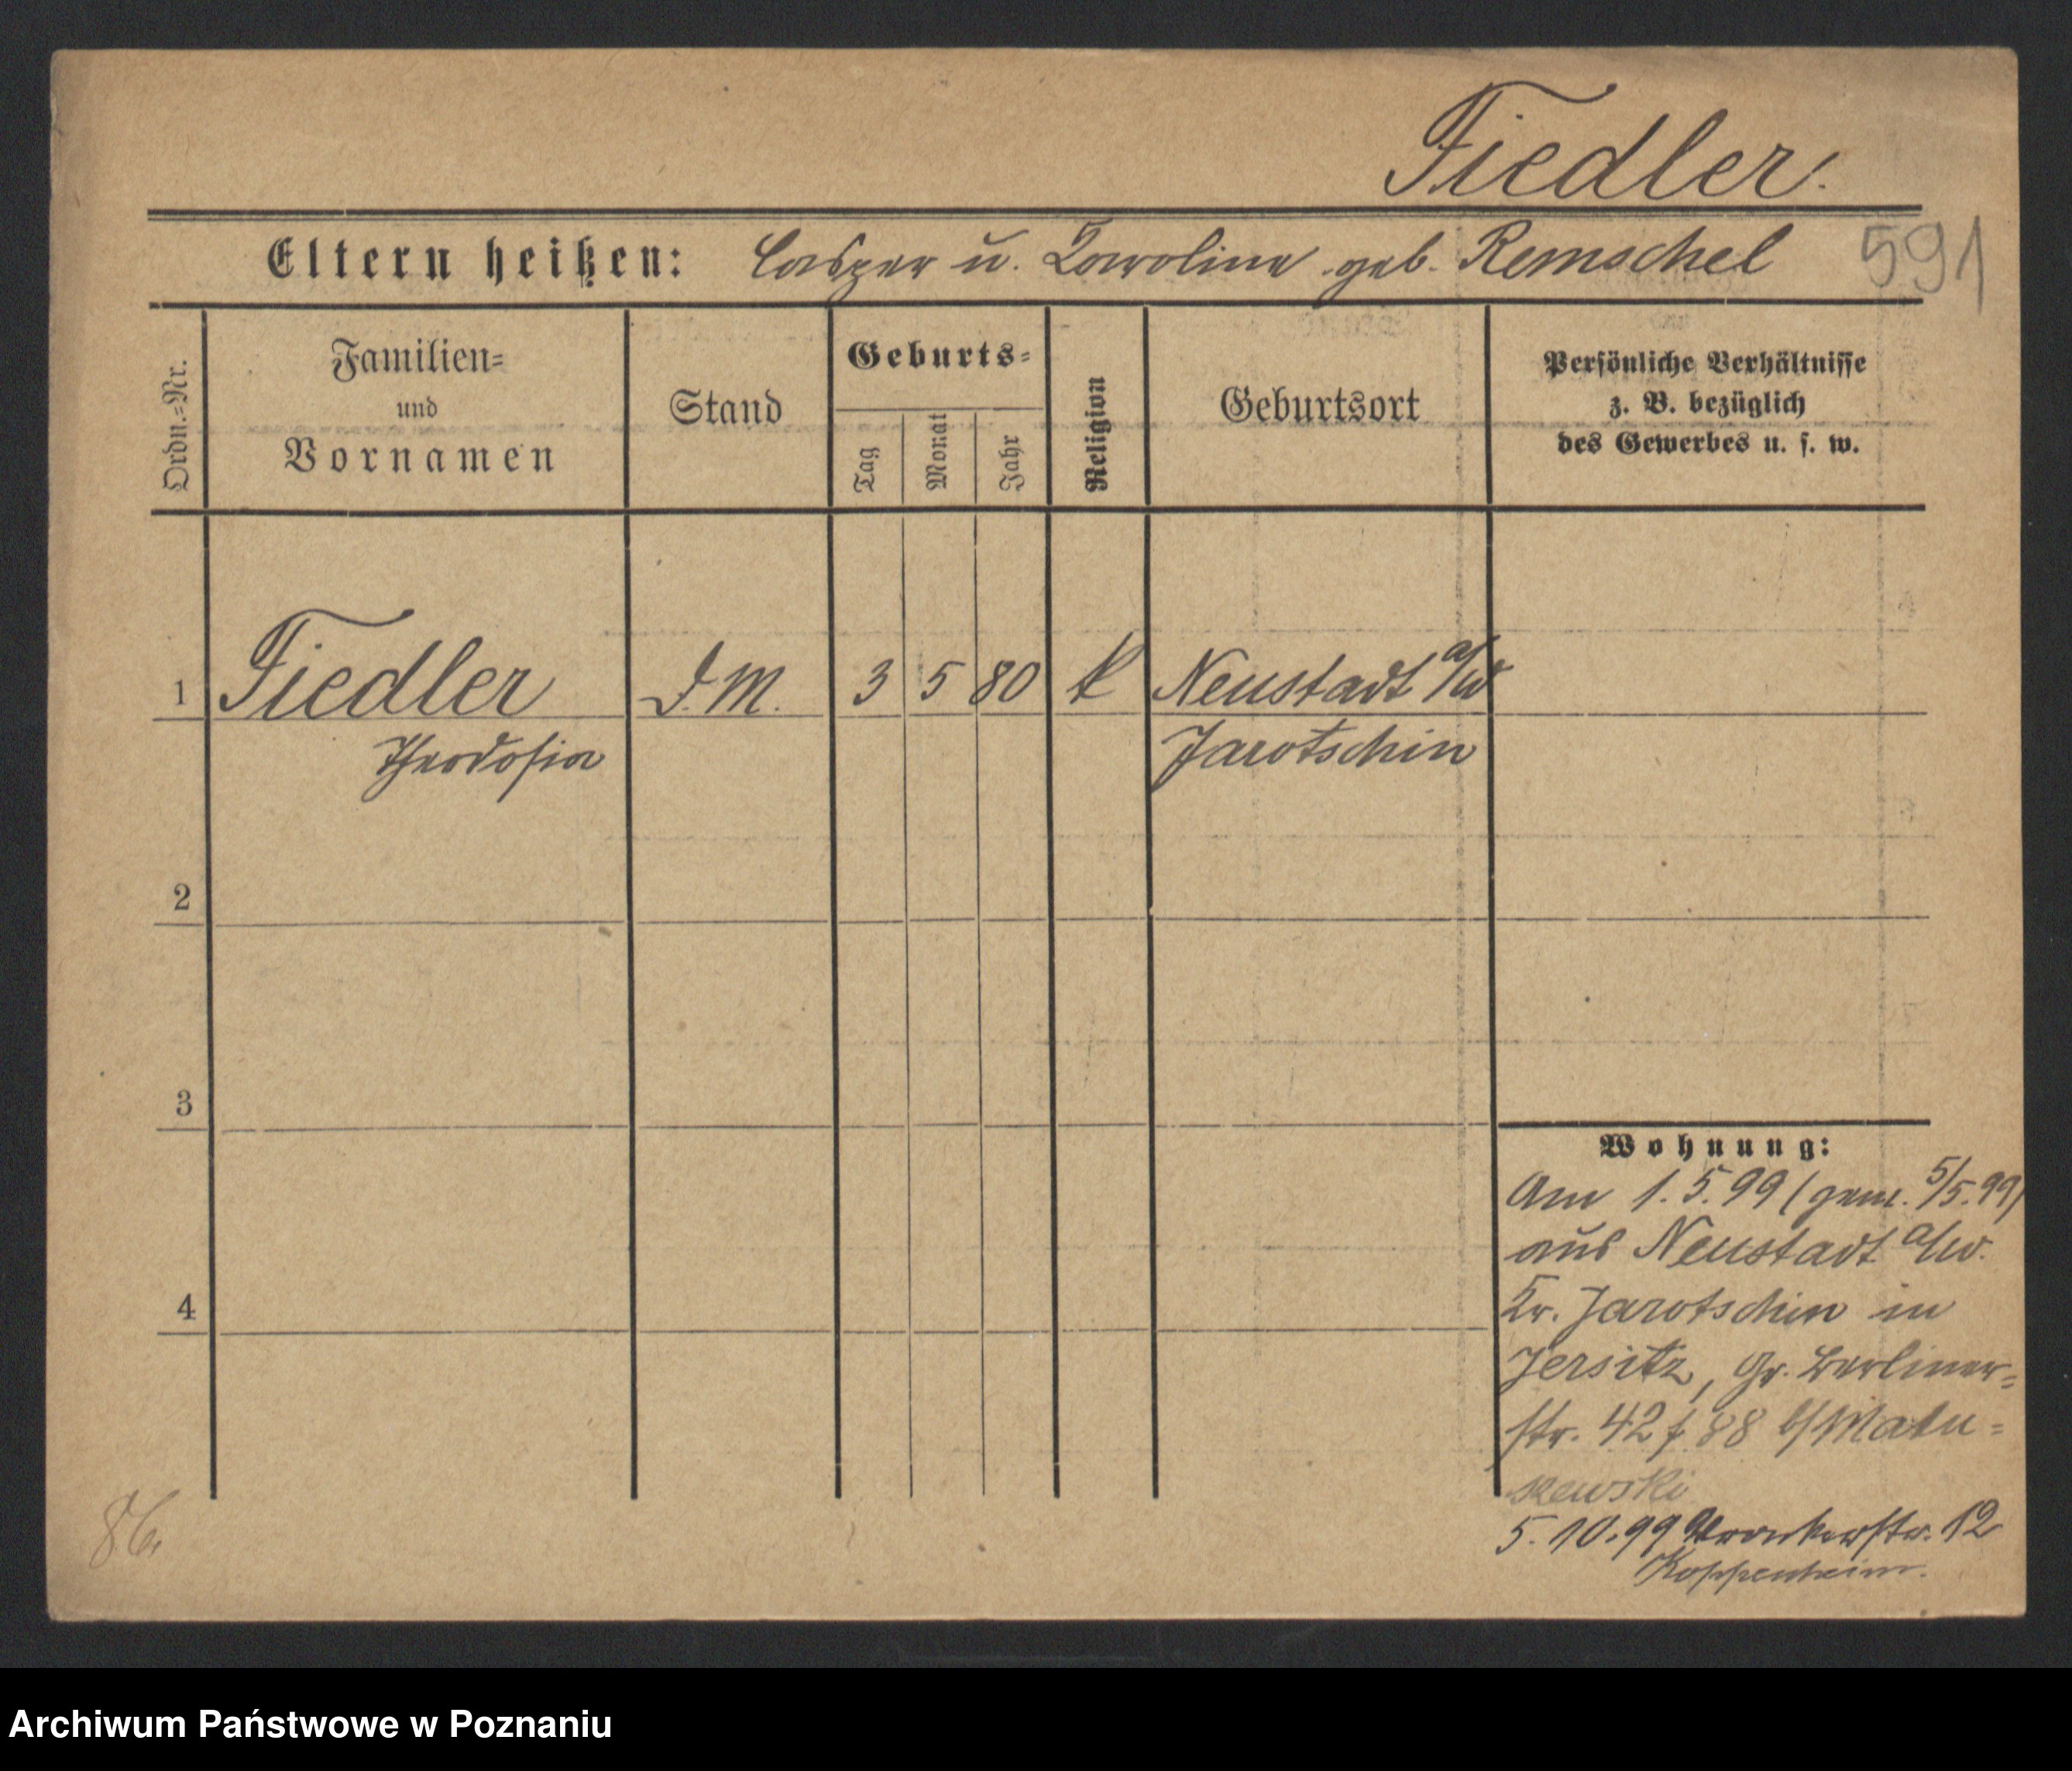 Fiedler.
591
Eltern heißen: Casper u. Karoline geb. Remschel
Ordn.=Nr.
Familien=
und
Vornamen
Stand
Geburts=
Tag
Monat
Jahr
Religion
Geburtsort
Persönliche Verhältnisse
z. B. bezüglich
des Gewerbes u. s. w.
1 Fiedler D.M. 3 5 80 k Neustadt a/W
Theodosia Jarotschin
2
3
4
Wohnung:
Am 1.5.99 (gem. 5/5.99)
aus Neustadt a/W.
Kr. Jarotschin in
Jersitz, Gr. Berliner=
str. 42 88 b/Matu=
szewski
5.10.99 Wronkerstr. 12
Koppenheim.
86.
Archiwum Państwowe w Poznaniu